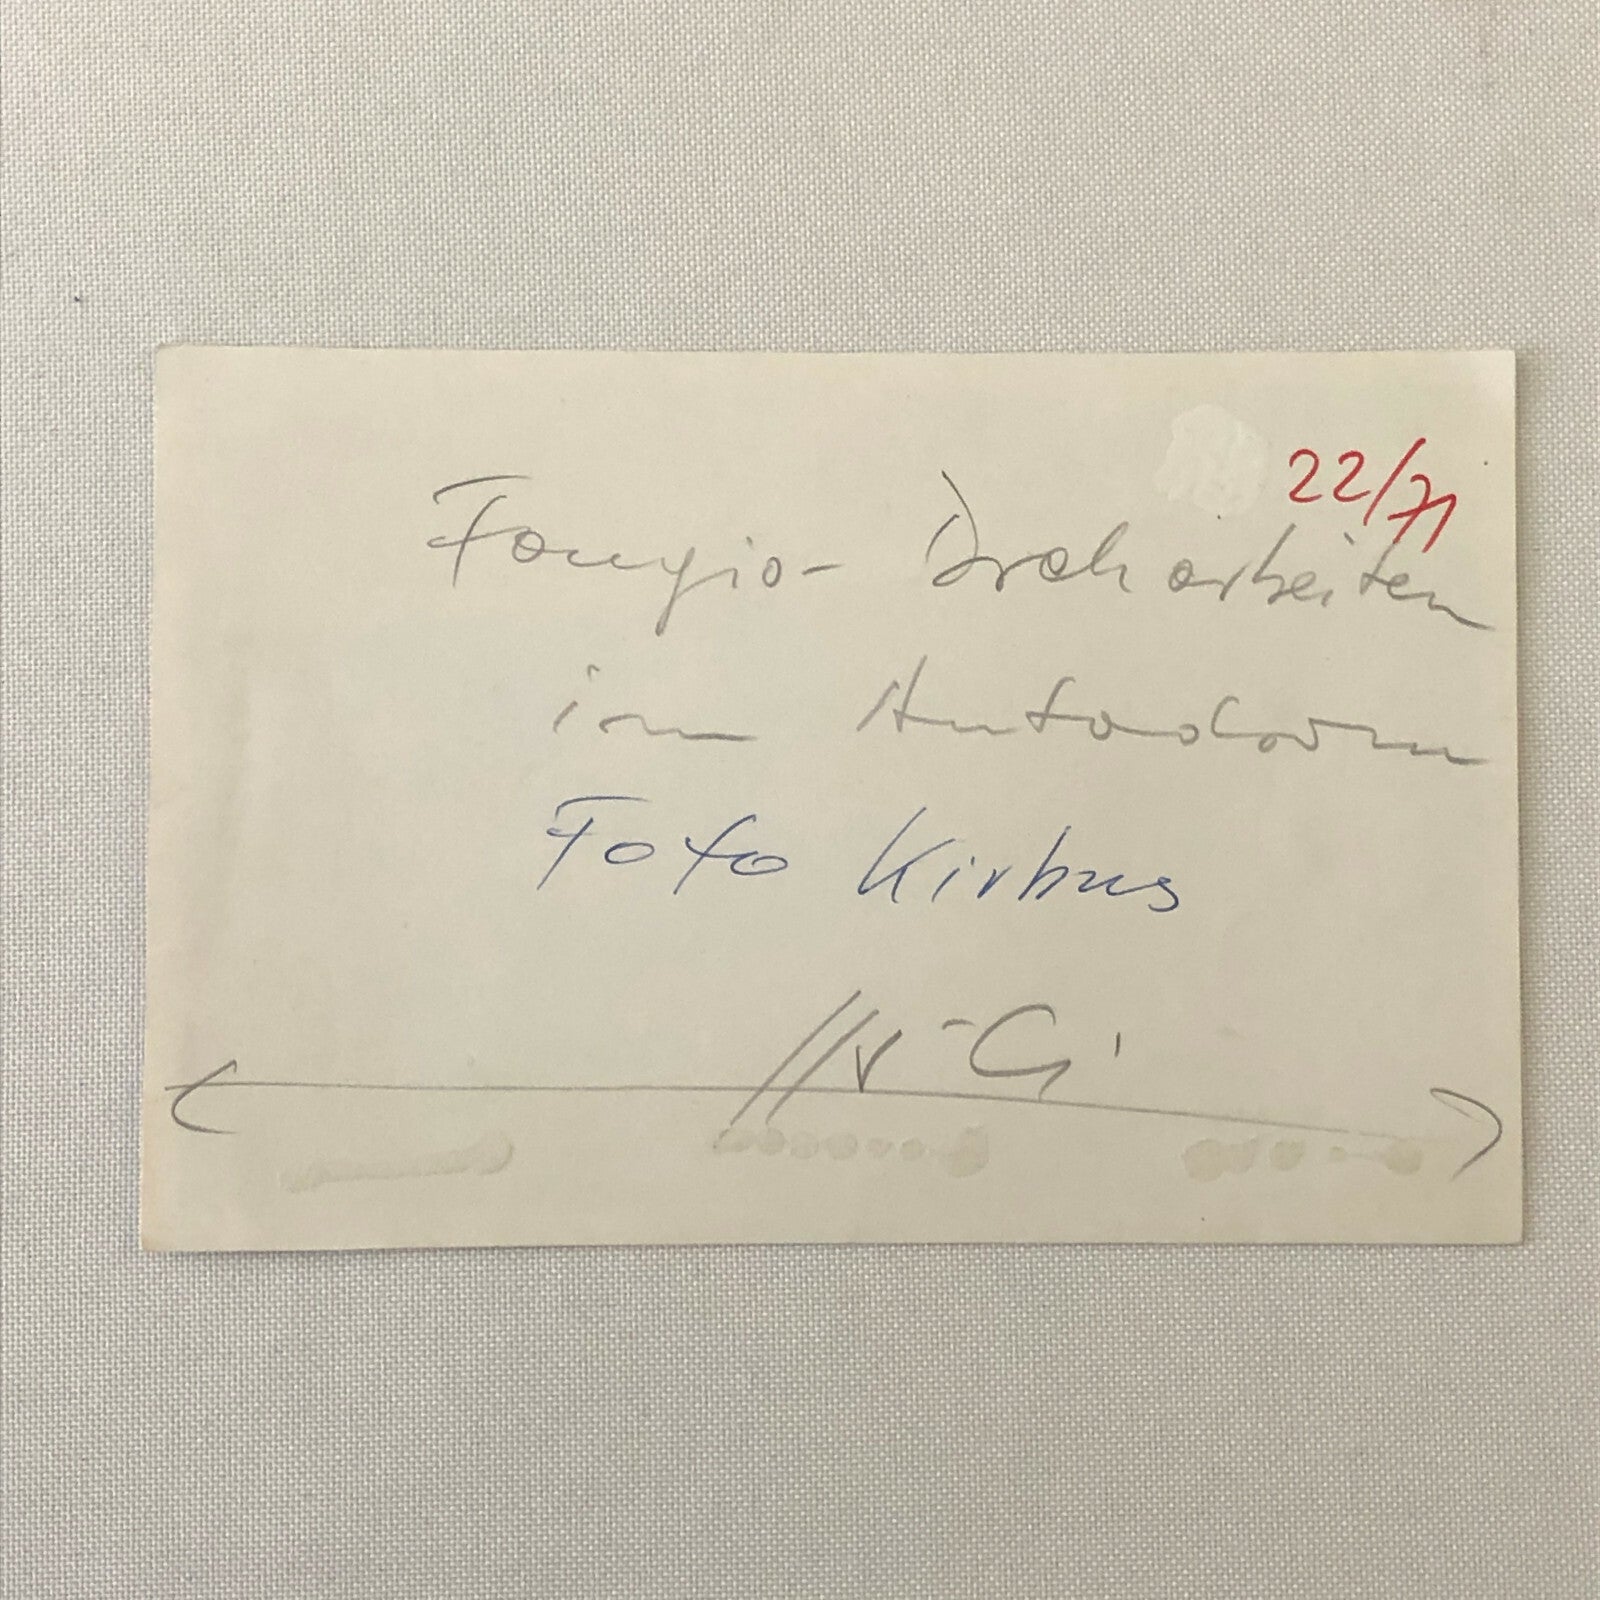 22/71
Fangio- Dreharbeiten
im Autodrom
Foto Kirbus